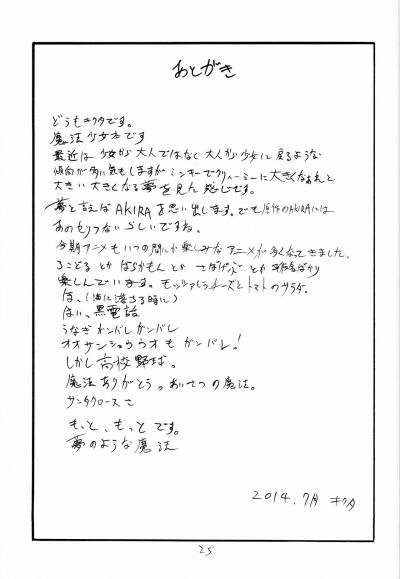 あとがき
どうもキクタです。
魔法少女ネです
最近は 少女から大人ではなく 大人が少女に戻るような
傾向が多い気もしますが ミンキーでクリィーミーに大きくなぁれと
大きい 大きくなる夢を見ん 感じです。
夢と言えば AKIRAを思い出します。でも 原作のAKIRAには
あのセリフないらしいですね。
今期アニメもいつの間にか楽しみなアニメが多くなってきました。
ろこどる とか ばらかもん とか さばげぶっ とか ばかり
楽しんでいます。モッツァレラチーズとトマトのサラダ。
は、(に落ちる時に)
はい、黒電話
うなぎ ガンバレ ガンバレ
オオサンショウウオも ガンバレ!
しかし 高校野球。
魔法 ありがとう。あいさつの魔法。
サンタクロース さ
もっと、もっと です。
夢のような魔法
2014.7月 キクタ
25